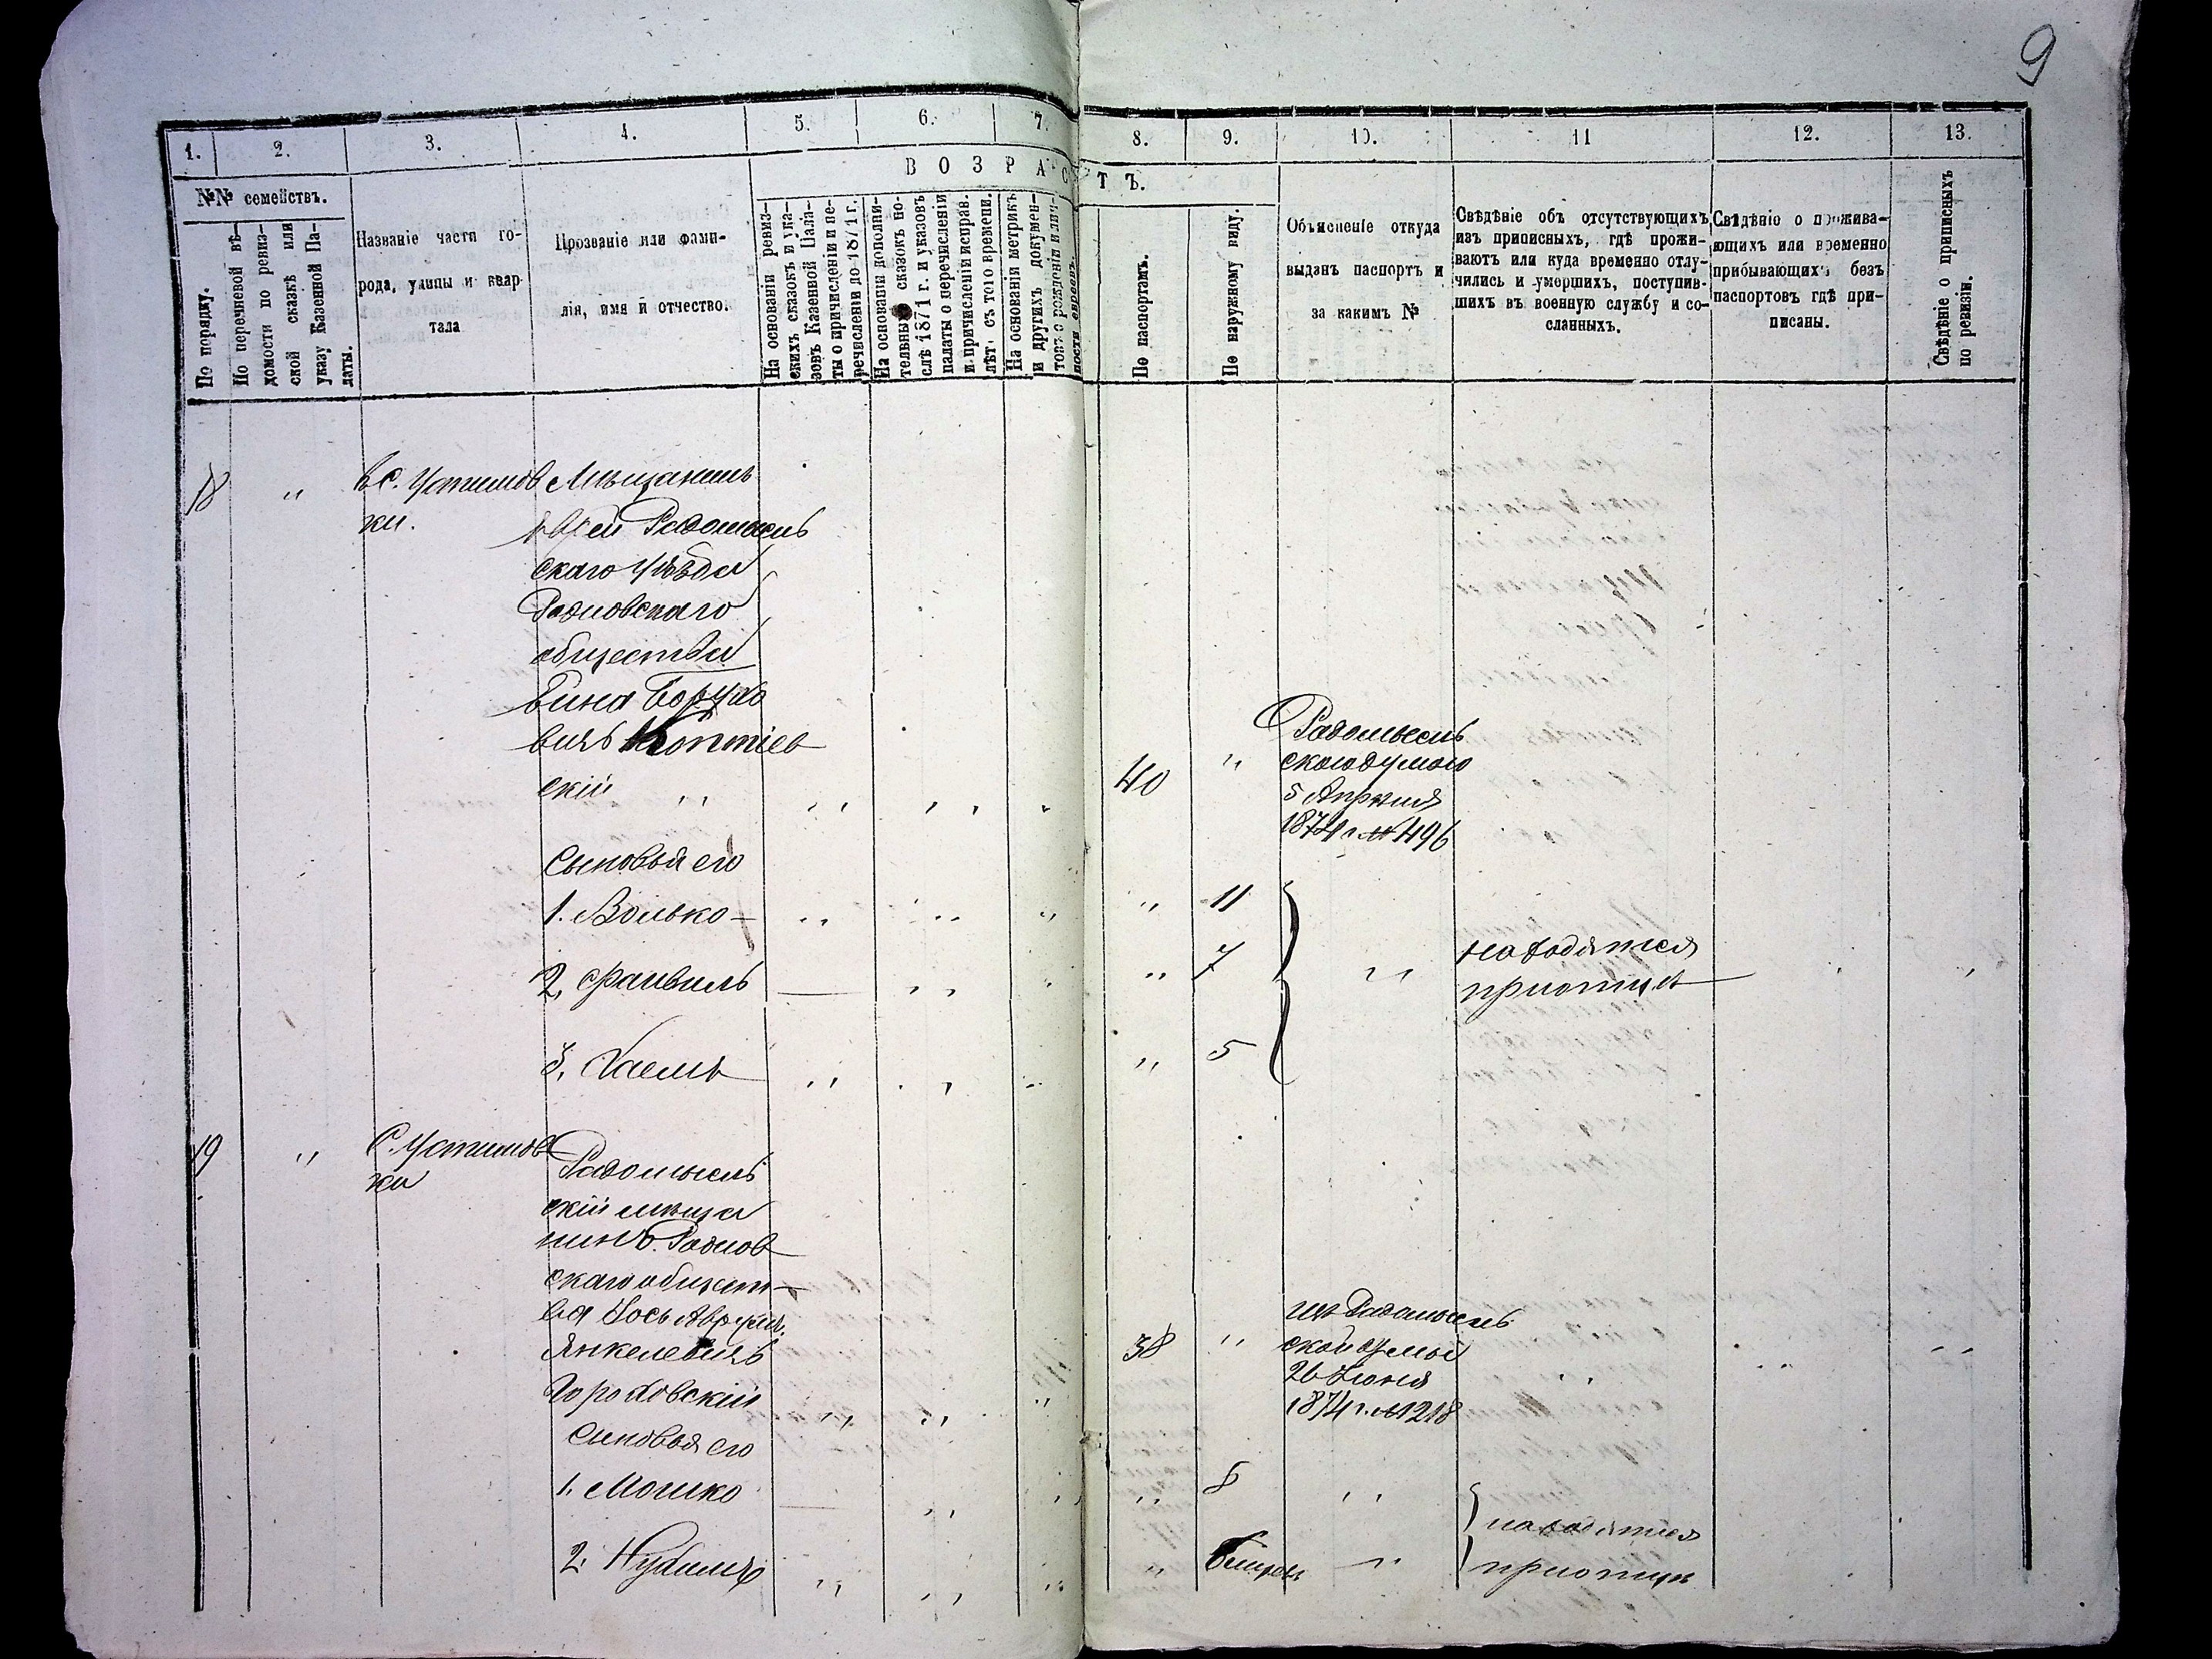 9
1. 2. 3. 4. 5. 6. 7. 8. 9. 10. 11 12. 13.
В О З Р А С Т Ъ.
№№ семействъ.
По порядку.
По перечневой вѣ-
домости по ревиз-
ской сказкѣ или
указу Казенной Па-
латы.
Названіе части го-
рода, улицы и квар-
тала
Прозваніе или фами-
лія, имя и отчество.
На основаніи ревиз-
скихъ сказокъ и ука-
зовъ Казенной Пала-
ты о причисленіи и пе-
речисленіи до 1871 г.
На основаніи дополни-
тельныхъ сказокъ по-
слѣ 1871 г. и указовъ
палаты о перечисленіи
и причисленіи исправ.
лѣтъ съ того времени.
На основаніи метрикъ
и другихъ докумен-
товъ о рожденіи и лич-
ности евреевъ.
По паспортамъ.
По наружному виду.
Объясненіе откуда
выданъ паспортъ и
за какимъ №
Свѣдѣніе объ отсутствующихъ
изъ приписныхъ, гдѣ прожи-
ваютъ или куда временно отлу-
чились и умершихъ, поступив-
шихъ въ военную службу и со-
сланныхъ.
Свѣдѣніе о прожива-
ющихъ или временно
прибывающихъ безъ
паспортовъ гдѣ при-
писаны.
Свѣдѣніе о приписныхъ
по ревизіи.
18 " в с. Устимов Мѣщанинъ
ки. еврей Радомысль
скаго уѣзда
общества
вичъ
скій " " " " " " " 40 "
Радомысль
5 Апрѣля
1874 г. № 496
Сыновья его
1. Волько " " " " " " 11
2. Файвиль " " " " 7 " находятся
при отцѣ
3. Хаемъ " " " " " " 5
19 " С. Устимов
ки
Радомысль
скій мѣща
нинъ
скаго общест
ва Іось Аврум.
Янкелевичъ
Гороховскій " " " 38 "
изъ Радомысль
ской думы
26 Іюня
1874 г. № 1218
Сыновья его
1. Мошко " " " 8 " находятся
2. Нухимъ " " " " " при отцѣ